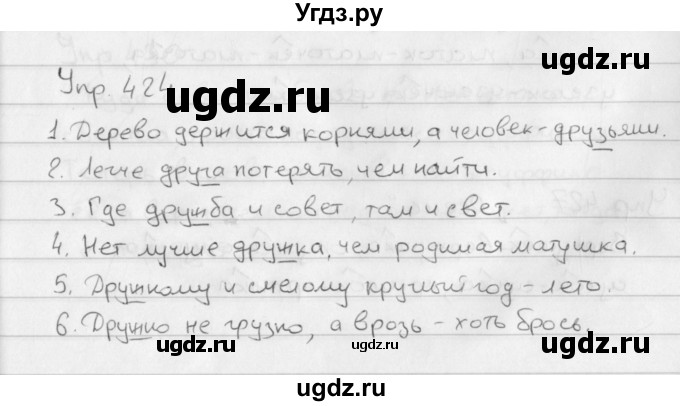 Угдз.ру
Упр. 424
ugdz.ru ugdz.ru
1. Дерево держится корнями, а человек - друзьями.
2. Легче друга потерять, чем найти.
ugdz.ru
3. Где дружба и совет, там и свет.
4. Нет лучше дружка, чем родимая матушка.
ugdz.ru
5. Дружному и смелому круглый год - лето.
6. Дружно не грузно, а врозь - хоть брось.
ugdz.ru ugdz.ru
ugdz.ru